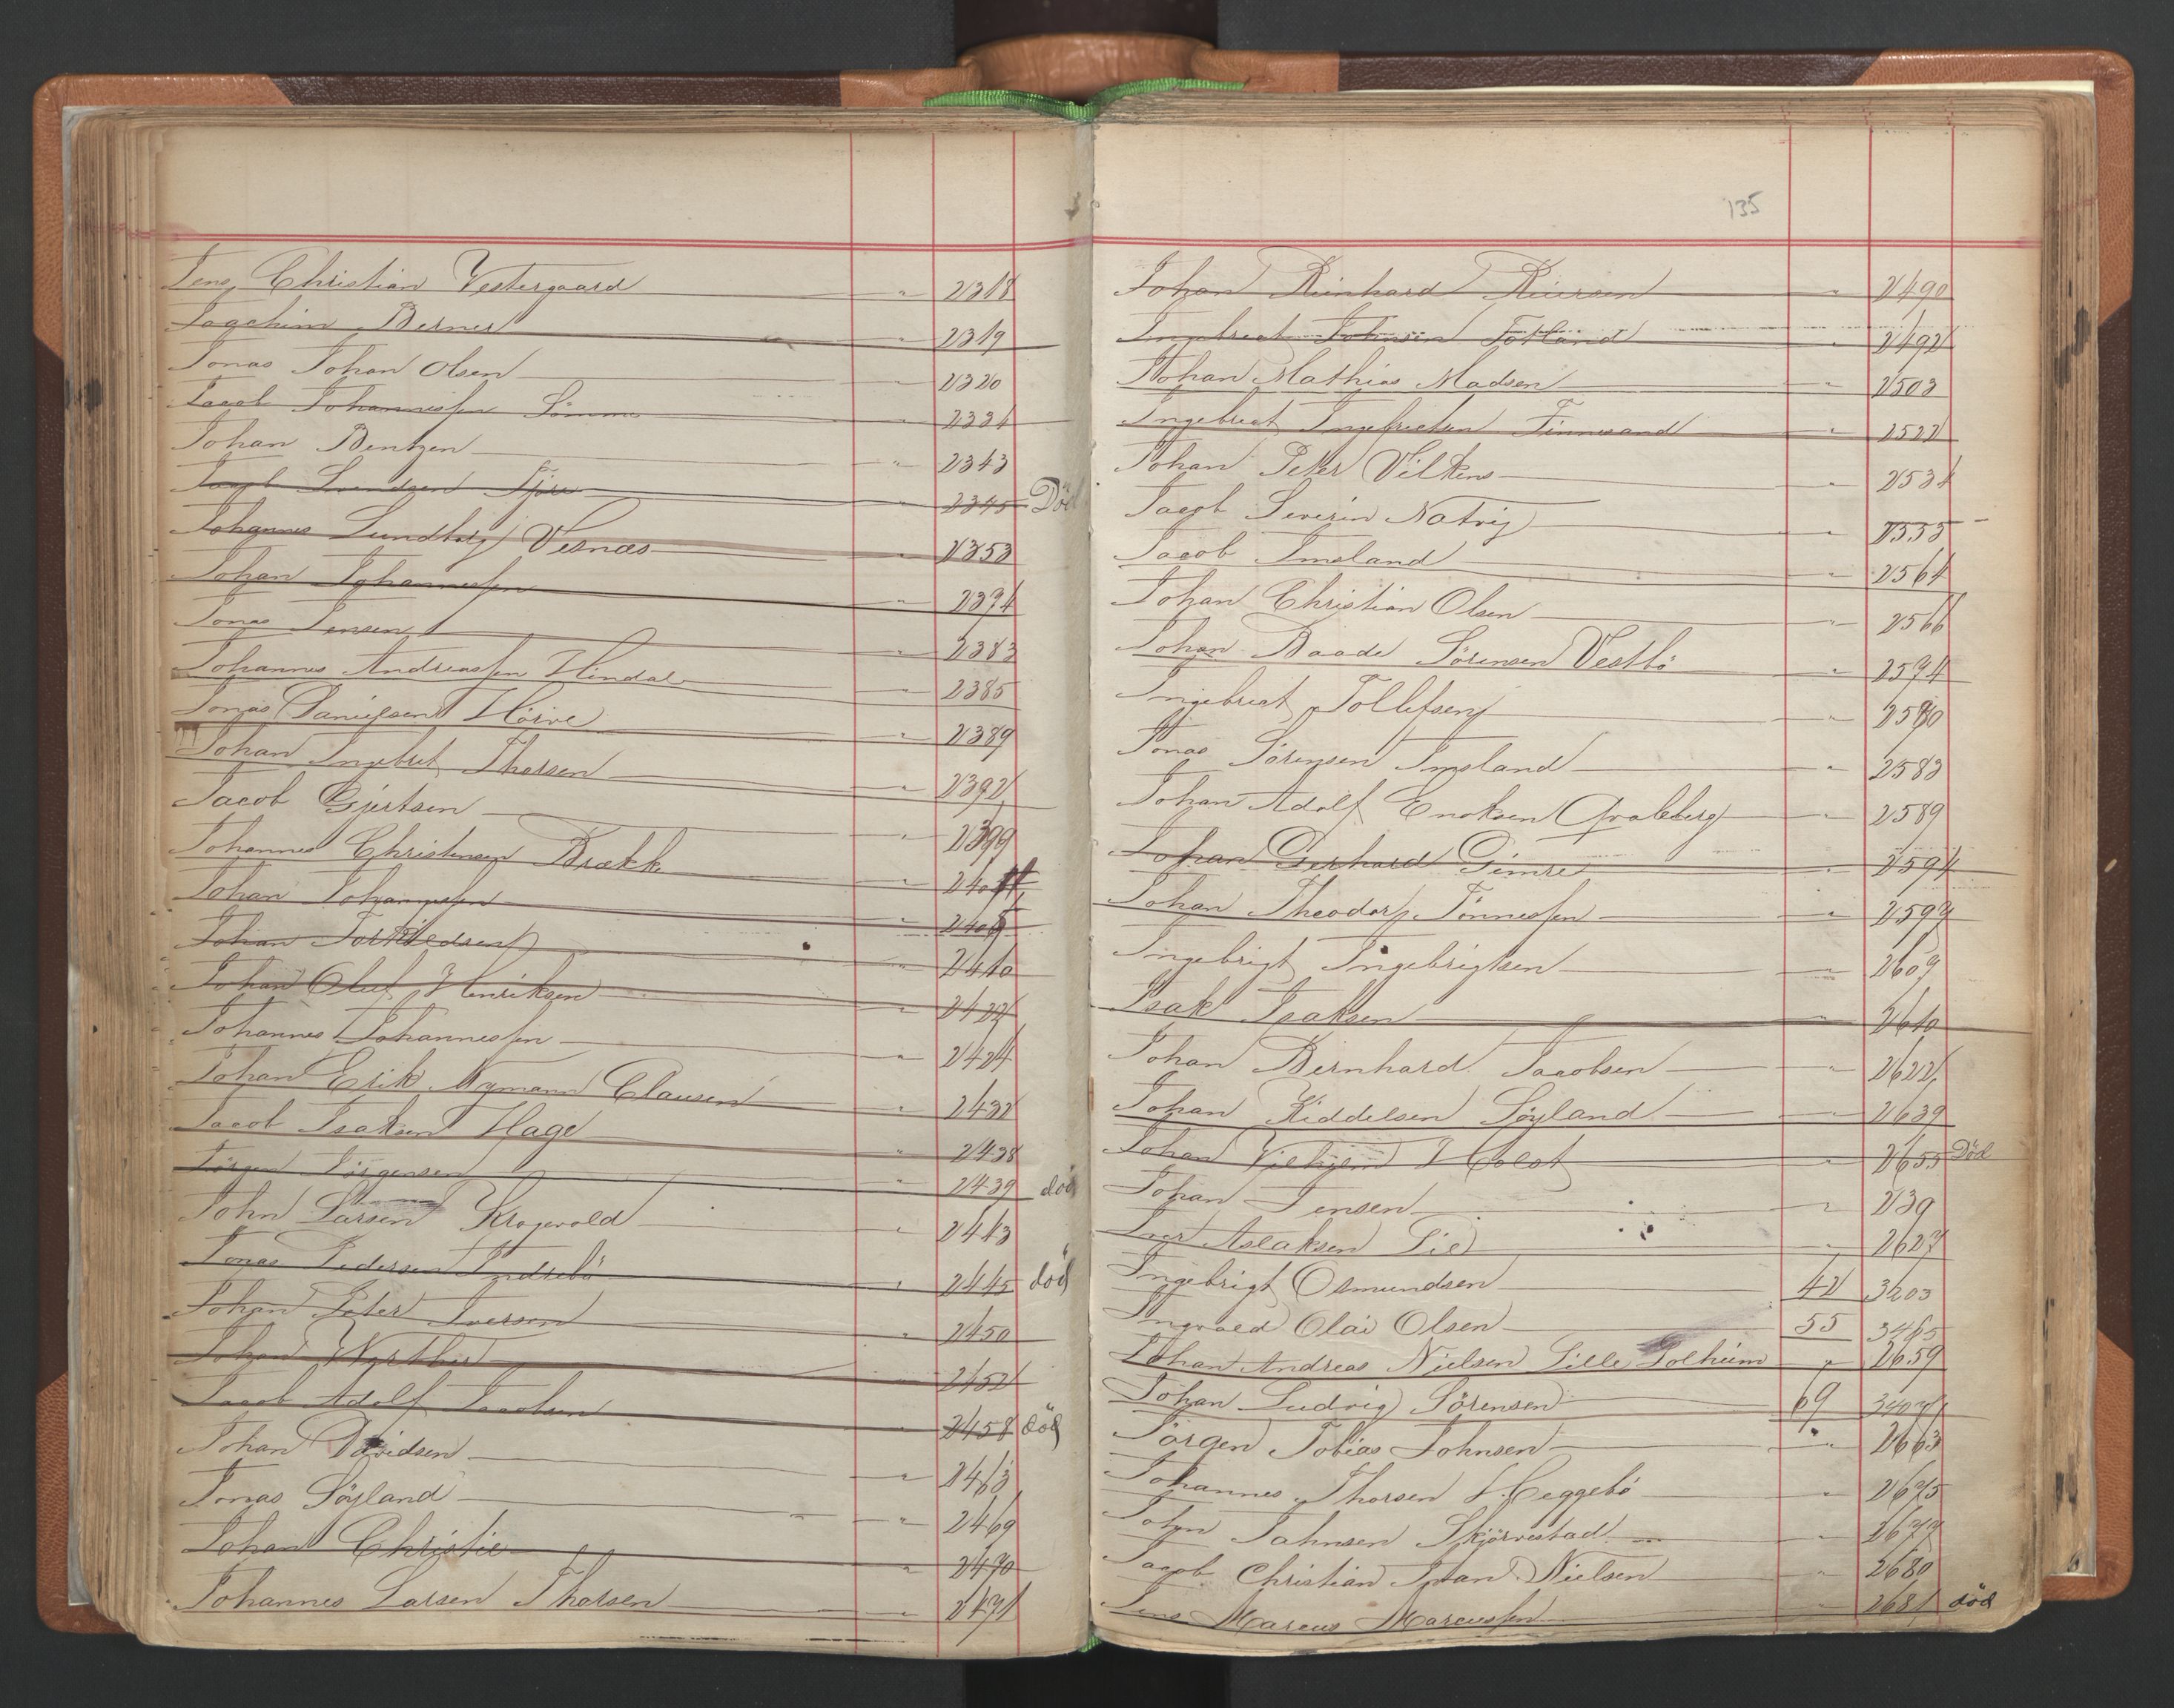 Jens Christian Vestergaard " 2318
Joachim Berner " 2319
Jonas Johan Olsen " 2320
Jacob Johannessen Sømme 2334
Johan Bentzen " 2343
Jacob Svendsen Tjøre " 2345 Död
Johannes Lundberg Vesnæs " 2353
Johan Johannessen " 2374
Jonas Jensen " 2383
Johannes Andreassen Hindal " 2385
Jonas Danielsen Hörve " 2389
Johan Ingebret Thorsen " 2392
Jacob Gjertsen " 2399
Johannes Christensen Brække "
Johan Johannessen "
Johan Torkildsen " 2410
Johan Oluf Henriksen " 2422
Johannes Johannessen " 2424
Johan Erik Nymann Clausen " 2432
Jacob Isaksen Hage " 2438
Jörgen Jörgensen " 2439 död
John Larsen Kragevold " 2443
Jonas Pedersen Indrebö " 2445 död
Johan Peter Iversen " 2450
Johan Werther " 2452
Jacob Adolf Jacobsen " 2458 död
Johan Davidsen " 2463
Jonas Söyland " 2469
Johan Christie " 2470
Johannes Larsen Thorsen " 2471
135
Johan Reinhard Reiersen " 2490
Ingebregt Johnsen Fotland " 2492
Johan Mathias Madsen " 2503
Ingebregt Ingebretsen Finnesand " 2522
Johan Peter Vilkens " 2534
Jacob Severin Natvig " 2555
Jacob Imsland " 2564
Johan Christian Olsen " 2566
Johan Baade Sörensen Vestbö " 2574
Ingebregt Tollefsen " 2580
Jonas Sörensen Imsland " 2583
Johan Adolf Enoksen Qvaleberg " 2589
Johan Gerhard Gimre " 2594
Johan Theodor Tönnessen " 2599
Ingebrigt Ingebrigtsen " 2609
Isak Isaksen " 2610
Johan Bernhard Jacobsen " 2622
Johan Kiddelsen Söyland " 2639
Johan Vilhjem Holst " 2655 Död
Johan Jensen " 239
Iver Aslaksen Lie " 2627
Ingebrigt Osmundsen 42 3203
Ingvald Olai Olsen 55 3465
Johan Andreas Nielsen Lille Solheim " 2659
Johan Ludvig Sörensen 69
Jörgen Tobias Johnsen " 2663
Johannes Thorsen Heggebö " 2675
John Jahnsen Skjörvestad " 2677
Jacob Christian Ivan Nielsen " 2680
Jens Marcus Marcussen " 2681 död